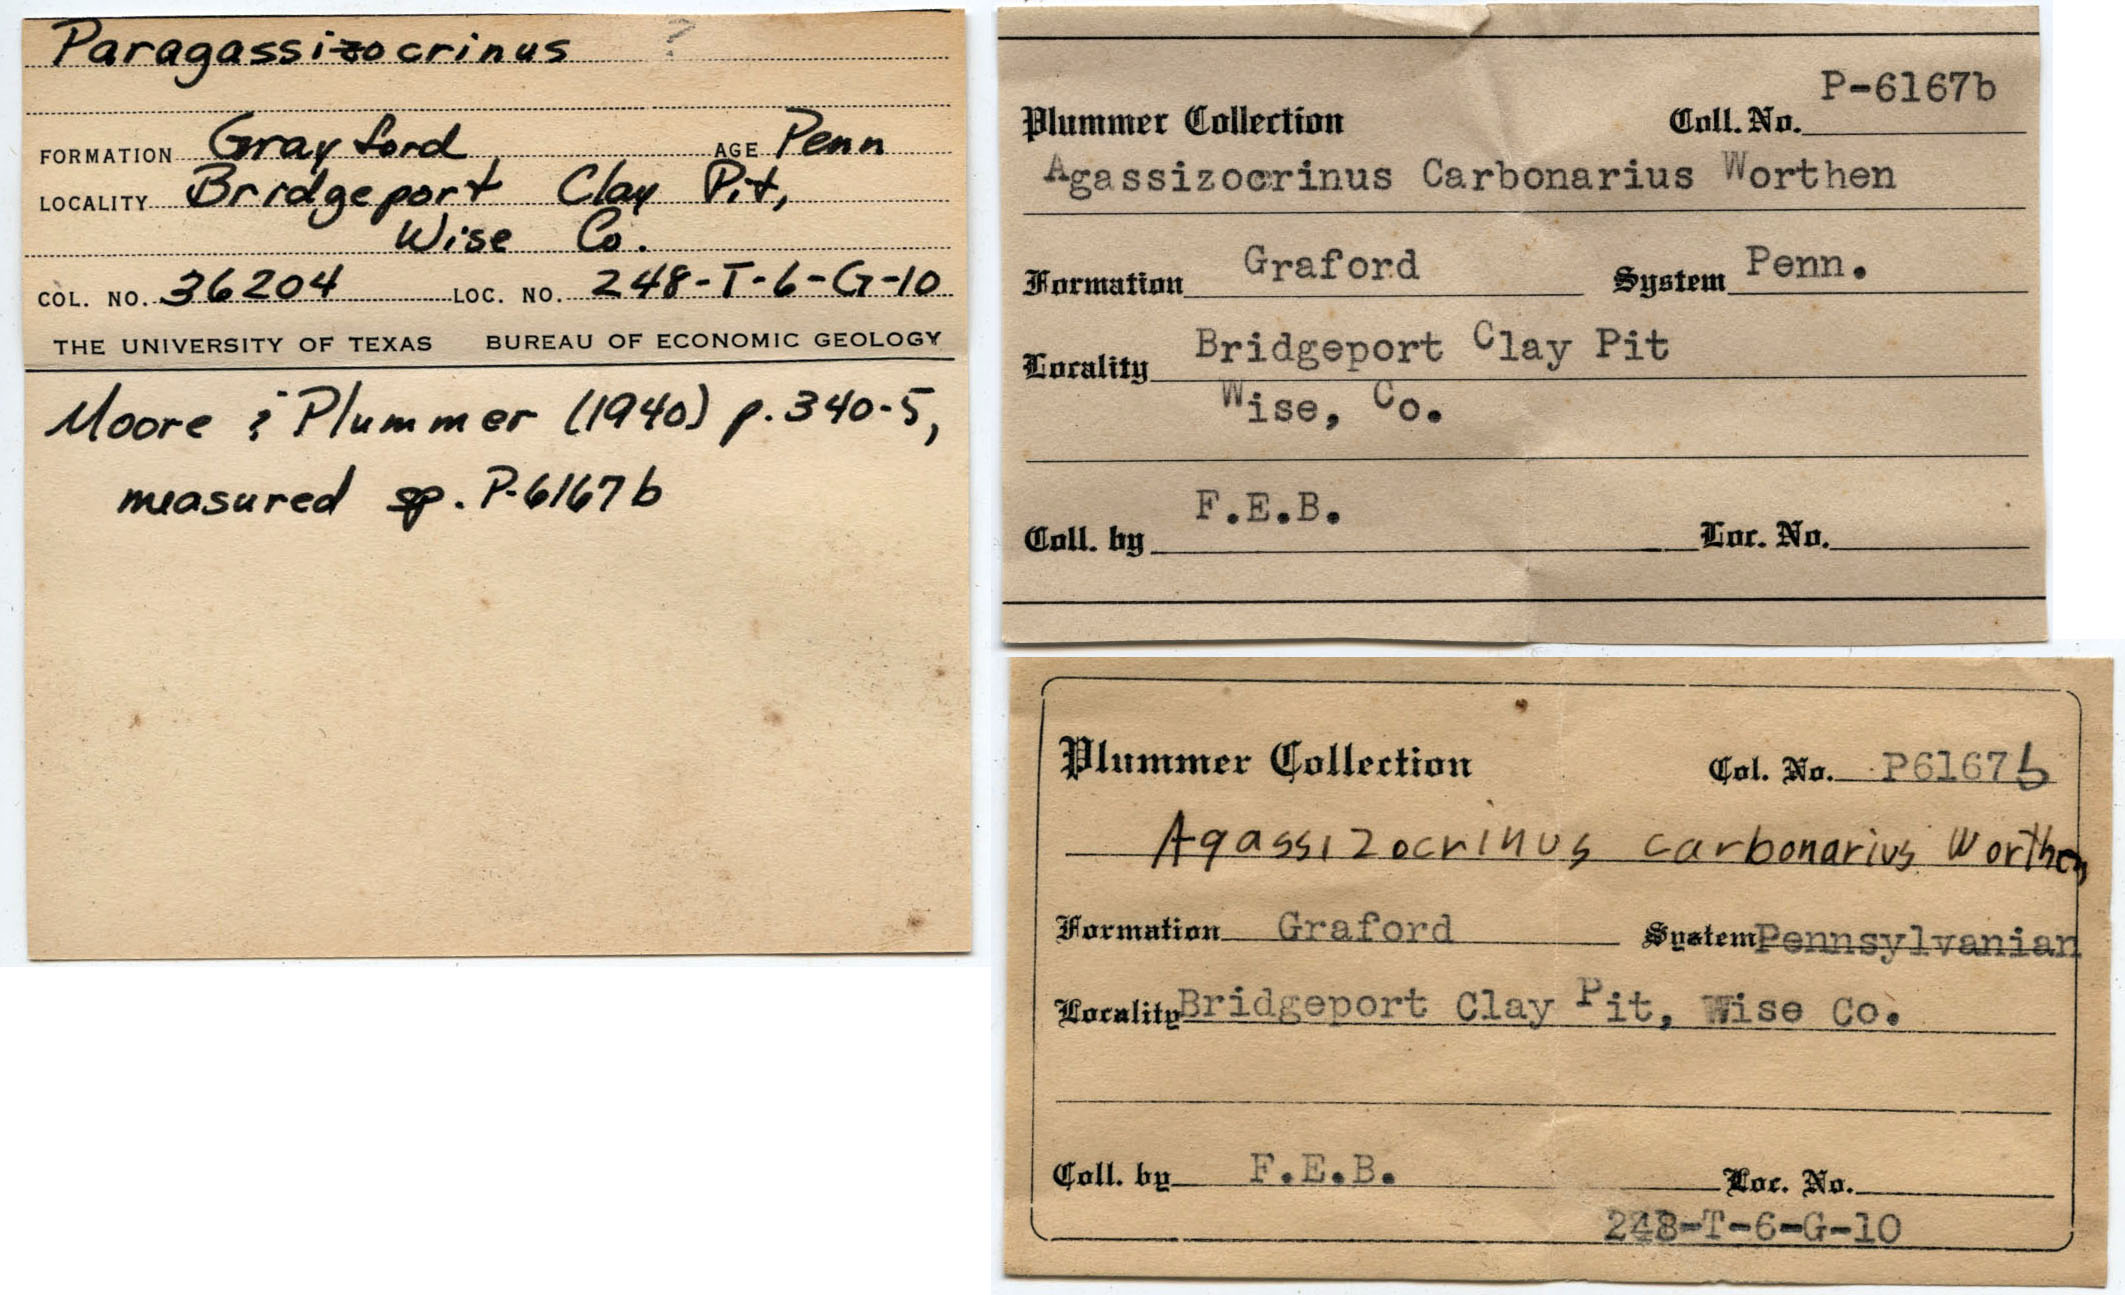 Paragassizocrinus ?
FORMATION Grayford AGE Penn
LOCALITY Bridgeport Clay Pit,
Wise Co.
COL. NO. 36204 LOC. NO. 248-T-6-G-10
THE UNIVERSITY OF TEXAS BUREAU OF ECONOMIC GEOLOGY
Moore & Plummer (1940) p. 340-5,
measured sp. P-6167b
P-6167b
Plummer Collection Coll. No.
Agassizocrinus Carbonarius Worthen
Formation Graford System Penn.
Locality Bridgeport Clay Pit
Wise, Co.
F.E.B.
Coll. by Loc. No.
Plummer Collection Col. No. P6167b
Agassizocrinus carbonarius Worthen
Formation Graford System Pennsylvanian
Locality Bridgeport Clay Pit, Wise Co.
Coll. by F.E.B. Loc. No.
248-T-6-G-10